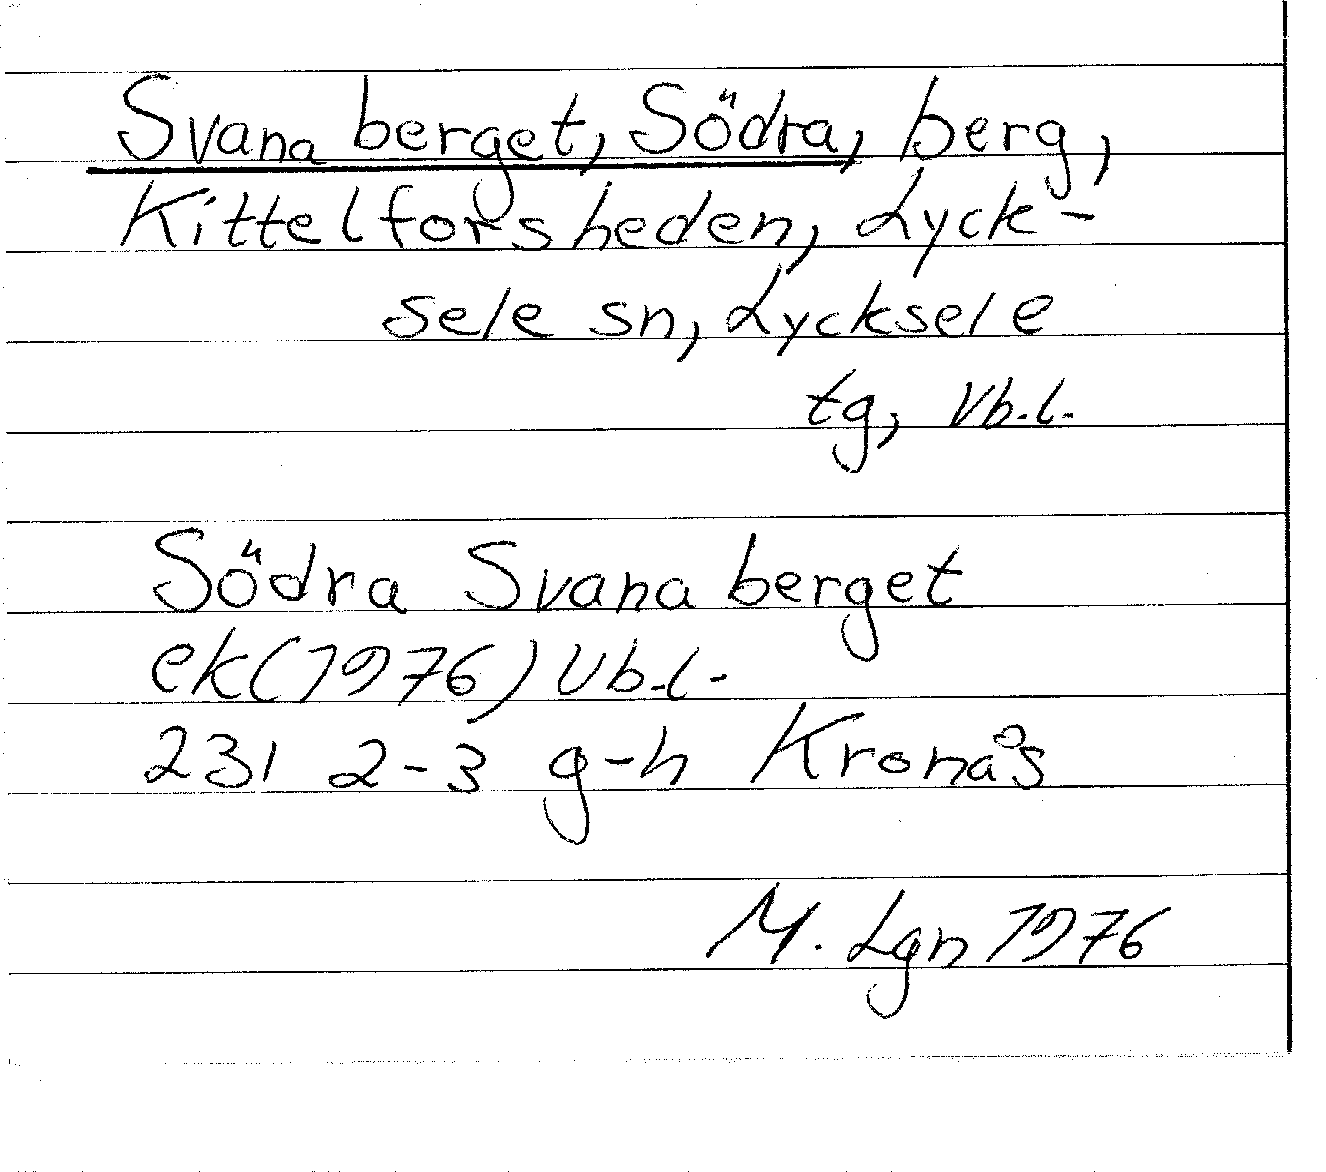 Svanaberget, Södra, berg,
Kittelforsheden, Lyck-
sele sn, Lycksele
tg, Vb.l.
Södra Svanaberget
ek(1976) Vb.l.
231 2-3 g-h Kronås
M. Lgn 1976